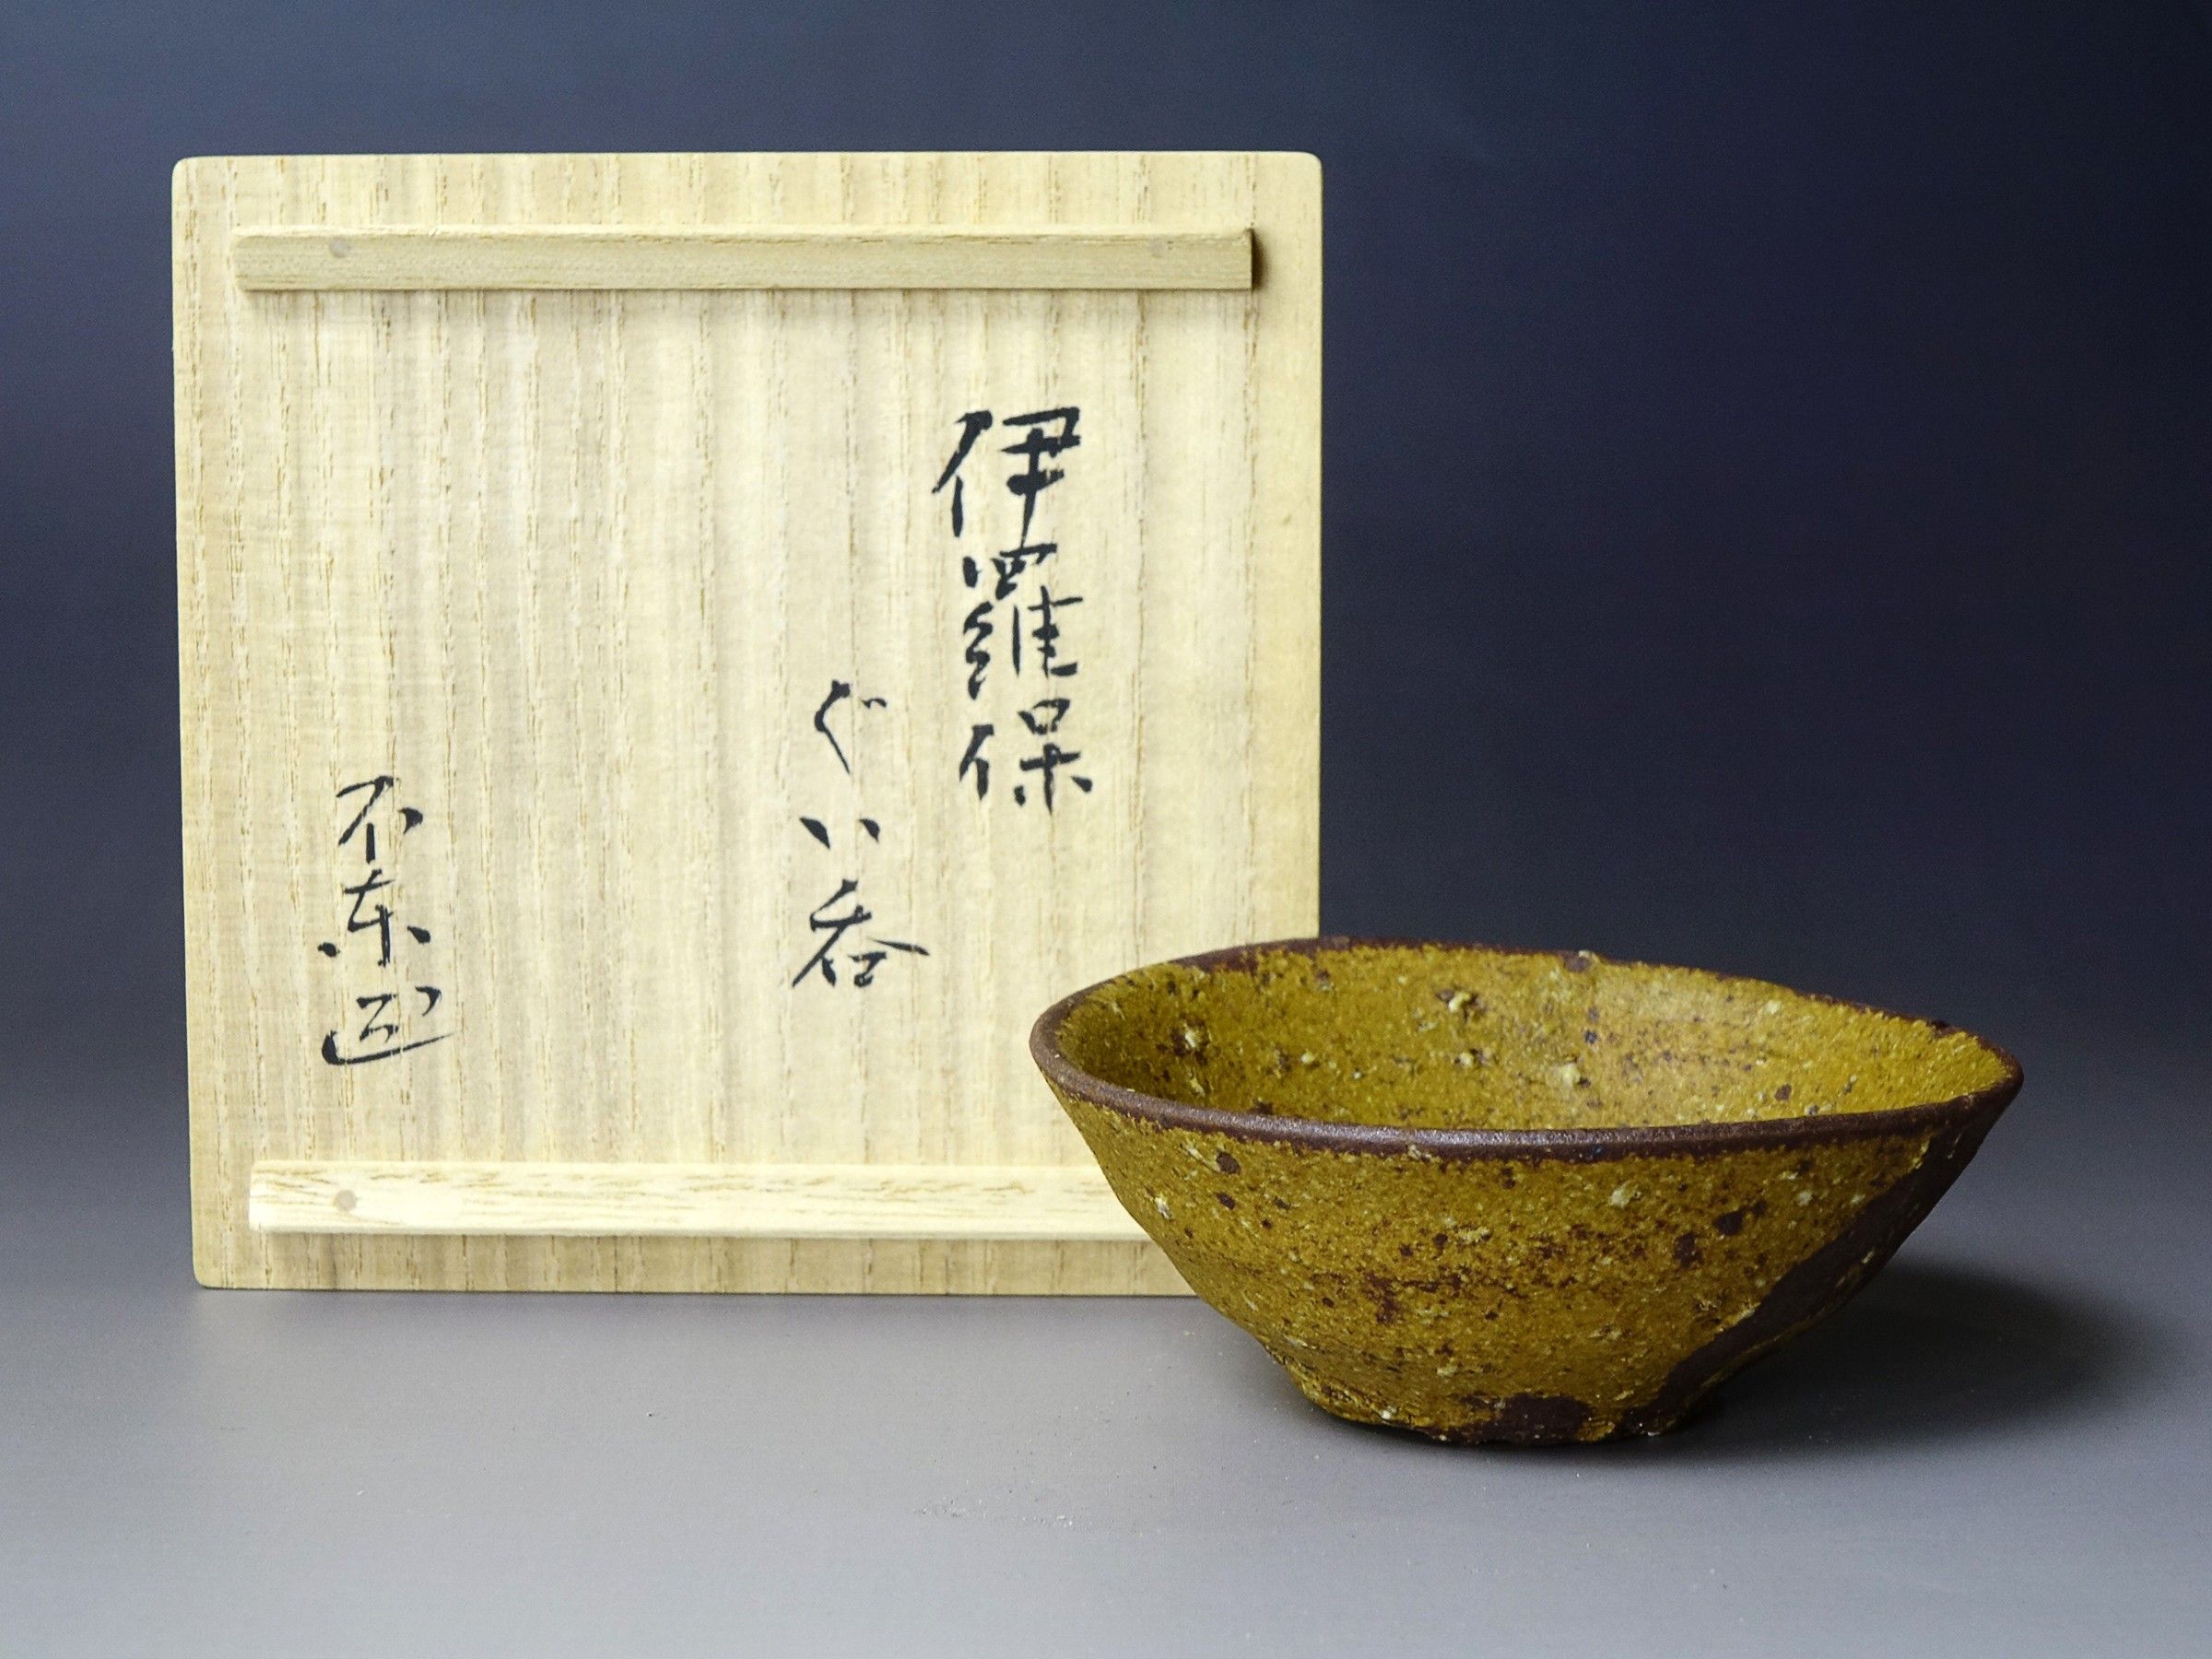 伊羅保
ぐい呑
不東